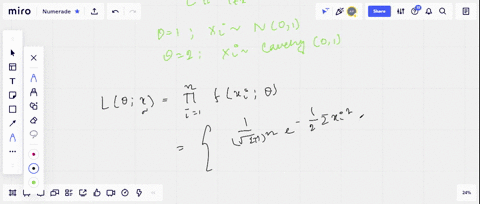 miro
Numerade
Share
θ=1 ; xᵢ ~ N(0,1)
θ=2 ; xᵢ ~ Cauchy (0,1)
L(θ; x) = ∏ᵢ₌₁ⁿ f(xᵢ; θ)
= { 1/(√2π)ⁿ e^(-1/2 Σxᵢ²)
24%